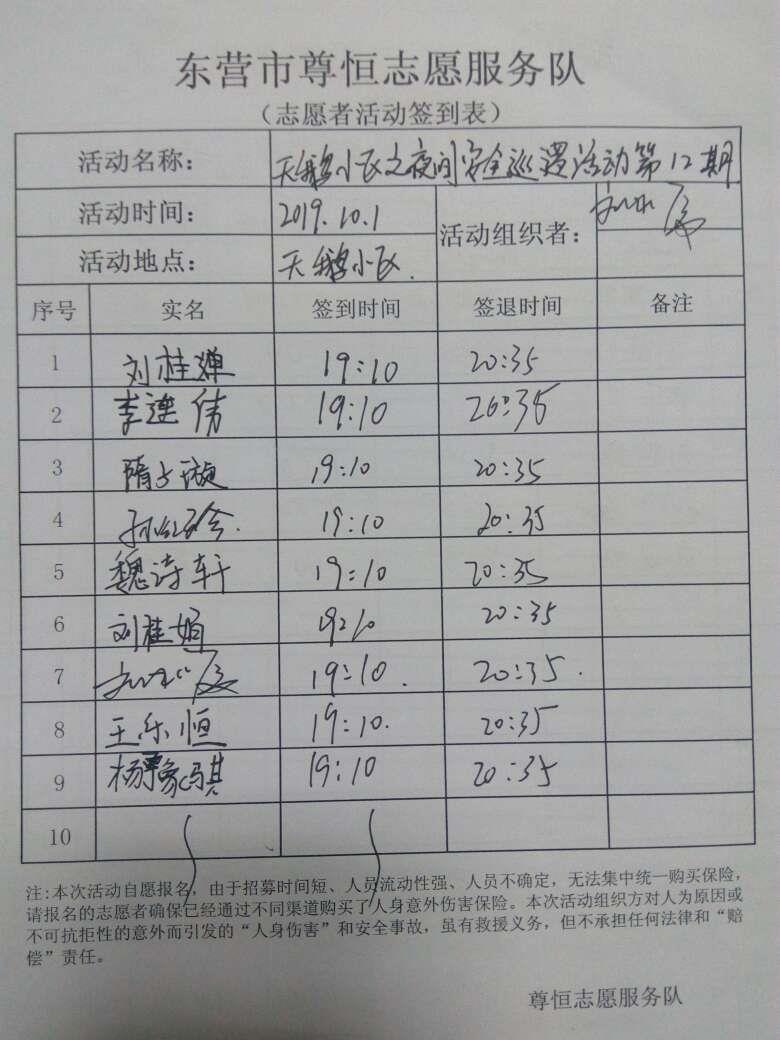 东营市尊恒志愿服务队
（志愿者活动签到表）
活动名称： 天鹅小区之夜间安全巡逻活动第12期
活动时间： 2019.10.1 活动组织者：
活动地点： 天鹅小区.
序号 实名 签到时间 签退时间 备注
1 刘桂婵 19:10 20:35
2 李连伟 19:10 20:35
3 隋 璇 19:10 20:35
4 孙红 19:10 20:35
5 魏诗轩 19:10 20:35
6 刘桂娟 19:10 20:35
7 19:10. 20:35.
8 王乐恒 19:10. 20:35
9 杨豫骐 19:10 20:35
10
注:本次活动自愿报名，由于招募时间短、人员流动性强、人员不确定，无法集中统一购买保险，
请报名的志愿者确保已经通过不同渠道购买了人身意外伤害保险。本次活动组织方对人为原因或
不可抗拒性的意外而引发的“人身伤害”和安全事故，虽有救援义务，但不承担任何法律和“赔
偿”责任。
尊恒志愿服务队